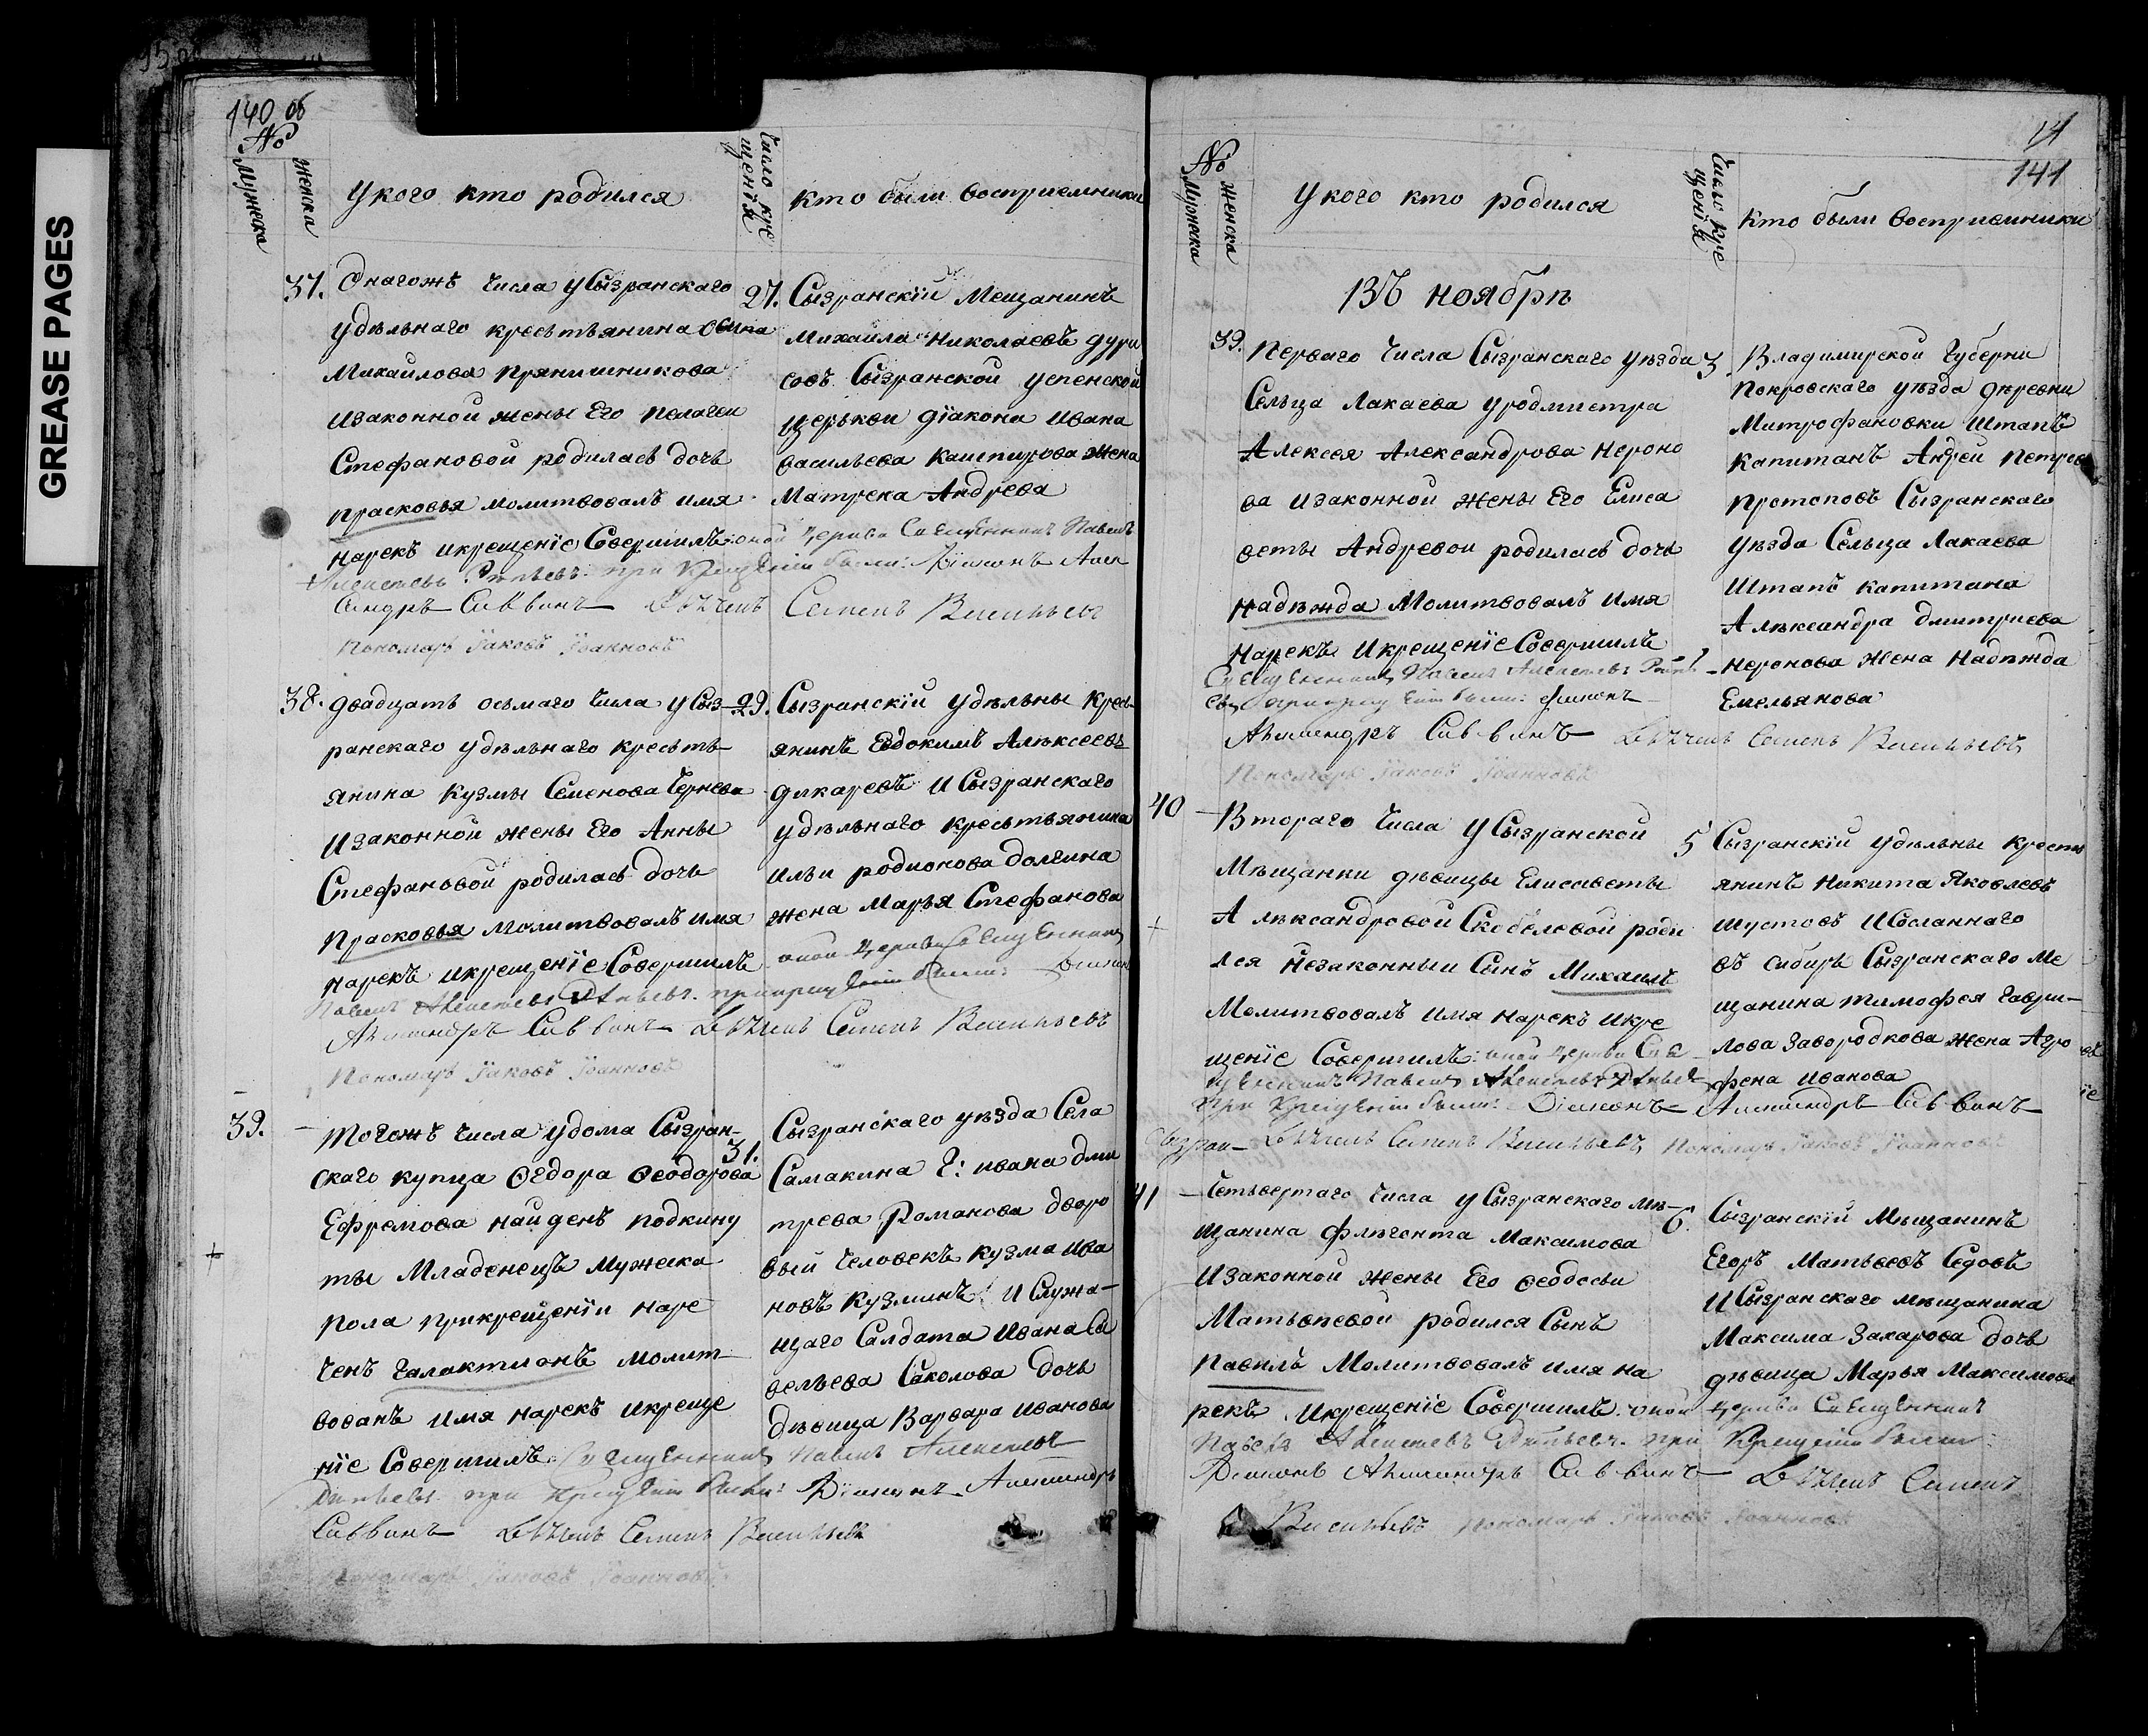 GREASE PAGES
140 об
№
Мужеска
женска
Укого кто родился
Число кре
щенія
кто были восприемники
37. Онагожъ числа уСызранскаго
удѣльнаго крестьянина Осипа
Михайлова Прянишникова
изаконной жены Его Пелагеи
Стефановой родилась дочь
Прасковья молитвовалъ имя
нарекъ икрещеніе Совершилъ: оной Церкви Священникъ Павелъ
Алексеевъ при крещеніи были: Діаконъ Алек
сандръ Саввинъ Дьячекъ Семенъ Васильевъ
Пономарь Іаковъ Іоанновъ
27. Сызранскій Мещанинъ
Михаила Николаевъ дури
совъ Сызранской успенской
церькви діакона Ивана
васильева Кашпирова жена
Матрена Андрева
38. двадцать осьмаго числа уСыз
ранскаго удѣльнаго кресть
янина Кузмы Семенова Чернева
изаконной жены Его Анны
Стефановой родилась дочь
Прасковья молитвовалъ имя
нарекъ икрещеніе Совершилъ оной Церкви Священникъ
Павелъ Алексеевъ прикрещеніи были: Діаконъ
Александръ Саввинъ Дьячекъ Семенъ Васильевъ
Пономарь Іаковъ Іоанновъ
29. Сызранскій удѣльны кресь
янинъ Евдокимъ Алѣксеевъ
дикаревъ и Сызранскаго
удѣльнаго крестьянина
ильи родионова долгина
жена Марья Стефанова
39. Тогожъ числа удома Сызран-
скаго купца Ѳедора Ѳеодорова
Ефремова найденъ подкину
ты Младенецъ Мужеска
пола прикрещеніи наре
ченъ Галактионъ молит
вованъ имя нарекъ икреще
ніе Совершилъ: Священникъ Павелъ Алексеевъ
при крещеніи были: Діаконъ Александръ
Саввинъ Дьячекъ Семенъ Васильевъ
Пономарь Іаковъ Іоанновъ
31. Сызранскаго уѣзда Села
Самакина Г: ивана дми
трева Романова дворо
вый человекъ кузма ива
новъ кузминъ и Служа-
щаго Салдата Ивана Са
вельева Саколова дочь
дѣвица Варвара Иванова
141
№
Мужеска
женска
Укого кто родился
Число кре
щенія
кто были восприемники
ВЪ ноябрѣ
39. Перваго числа Сызранскаго уѣзда
Сельца Лакаева уродмистра
Алексея Александрова Нероно
ва изаконной жены Его Елиса
веты Андревой родилась дочь
Надѣжда Молитвовалъ имя
нарекъ икрещеніе Совершилъ
Священникъ Павелъ Алексеевъ
прикрещеніи были: Діаконъ
Александръ Саввинъ Дьячекъ Семенъ Васильевъ
Пономарь Іаковъ Іоанновъ
3. Владимирской Губерни
Покровскаго уѣзда деревни
Митрофановки Штапъ
капитанъ Андрей Петровъ
Протоповъ Сызранскаго
уѣзда Сельца Лакаева
Штапъ капитана
Алѣксандра дмитриева
Неронова жена Надѣжда
Емельянова
40 Втораго числа уСызранской
Мѣщанки дѣвицы Елисаветы
Алѣксандровой Скобелевой роди
лся незаконный Сынъ Михаилъ
Молитвовалъ имя нарекъ икре
щеніе Совершилъ: оной Церкви Свя
щенникъ Павелъ Алексеевъ
при крещеніи были: Діаконъ Александръ Саввинъ
Дьячекъ Семенъ Васильевъ Пономарь Іаковъ Іоанновъ
5 Сызранскій удѣльны кресть
янинъ Никита Яковлевъ
Шустовъ и Сосланнаго
въ Сибирь Сызранскаго Ме
щанина тимофея Гаври-
лова Завородкова жена Агро
фена Иванова
41 Четвертаго числа уСызранскаго Мѣ-
щанина флѣгонта Максимова
изаконной жены Его Ѳеодосьи
Матьвѣевой родился Сынъ
Павилъ Молитвовалъ имя на
рекъ икрещеніе Совершилъ: оной Церкви Священникъ
Павелъ Алексеевъ при крещеніи были:
Діаконъ Александръ Саввинъ Дьячекъ Семенъ
Васильевъ Пономарь Іаковъ Іоанновъ
6. Сызранскій Мѣщанинъ
Егоръ Матьвеевъ Седовъ
и Сызранскаго мѣщанина
Максима Захарова дочь
дѣвица Марья Максимова